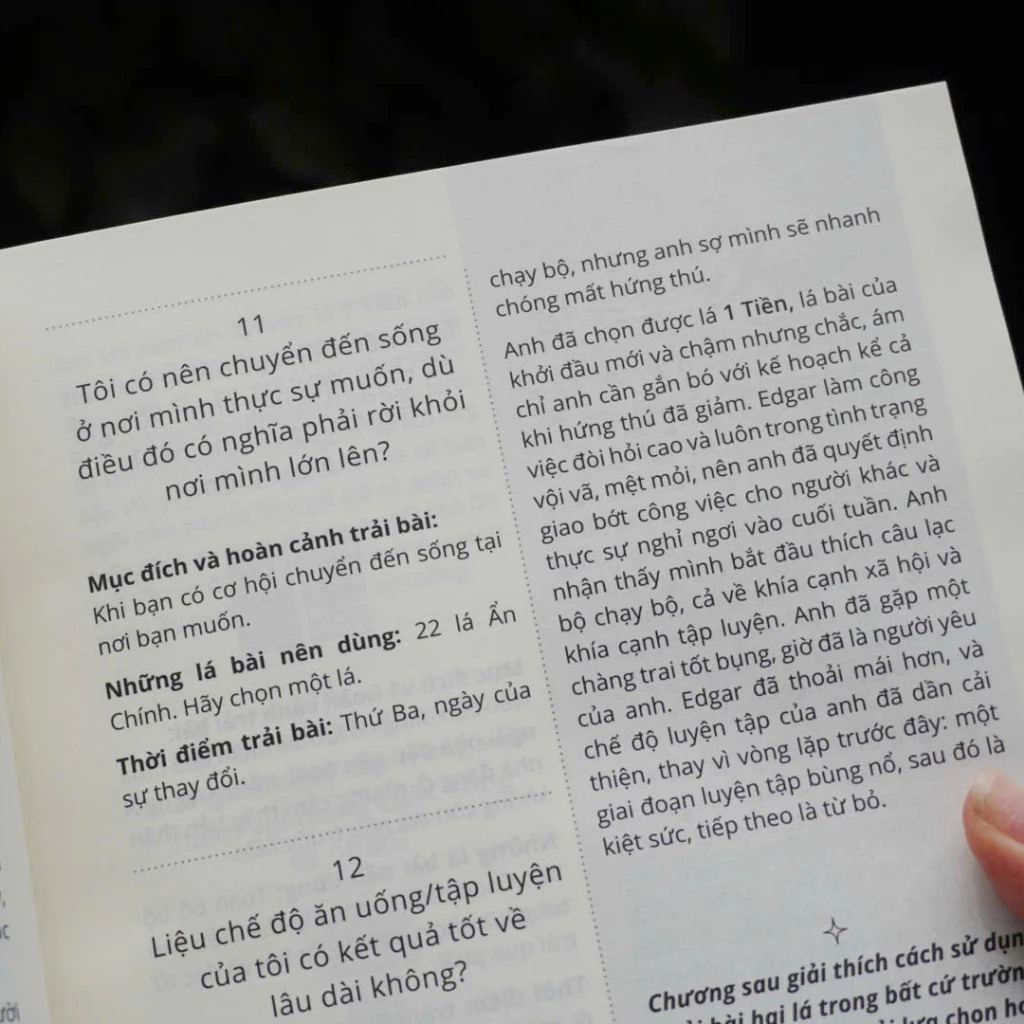 11
Tôi có nên chuyển đến sống
ở nơi mình thực sự muốn, dù
điều đó có nghĩa phải rời khỏi
nơi mình lớn lên?
Mục đích và hoàn cảnh trải bài:
Khi bạn có cơ hội chuyển đến sống tại
nơi bạn muốn.
Những lá bài nên dùng: 22 lá Ẩn
Chính. Hãy chọn một lá.
Thời điểm trải bài: Thứ Ba, ngày của
sự thay đổi.
12
Liệu chế độ ăn uống/tập luyện
của tôi có kết quả tốt về
lâu dài không?
chạy bộ, nhưng anh sợ mình sẽ nhanh
chóng mất hứng thú.
Anh đã chọn được lá 1 Tiền, lá bài của
khởi đầu mới và chậm nhưng chắc, ám
chỉ anh cần gắn bó với kế hoạch kể cả
khi hứng thú đã giảm. Edgar làm công
việc đòi hỏi cao và luôn trong tình trạng
vội vã, mệt mỏi, nên anh đã quyết định
giao bớt công việc cho người khác và
thực sự nghỉ ngơi vào cuối tuần. Anh
nhận thấy mình bắt đầu thích câu lạc
bộ chạy bộ, cả về khía cạnh xã hội và
khía cạnh tập luyện. Anh đã gặp một
chàng trai tốt bụng, giờ đã là người yêu
của anh. Edgar đã thoải mái hơn, và
chế độ luyện tập của anh đã dần cải
thiện, thay vì vòng lặp trước đây: một
giai đoạn luyện tập bùng nổ, sau đó là
kiệt sức, tiếp theo là từ bỏ.
Chương sau giải thích cách sử dụn
bài hai lá trong bất cứ trườn
chọn